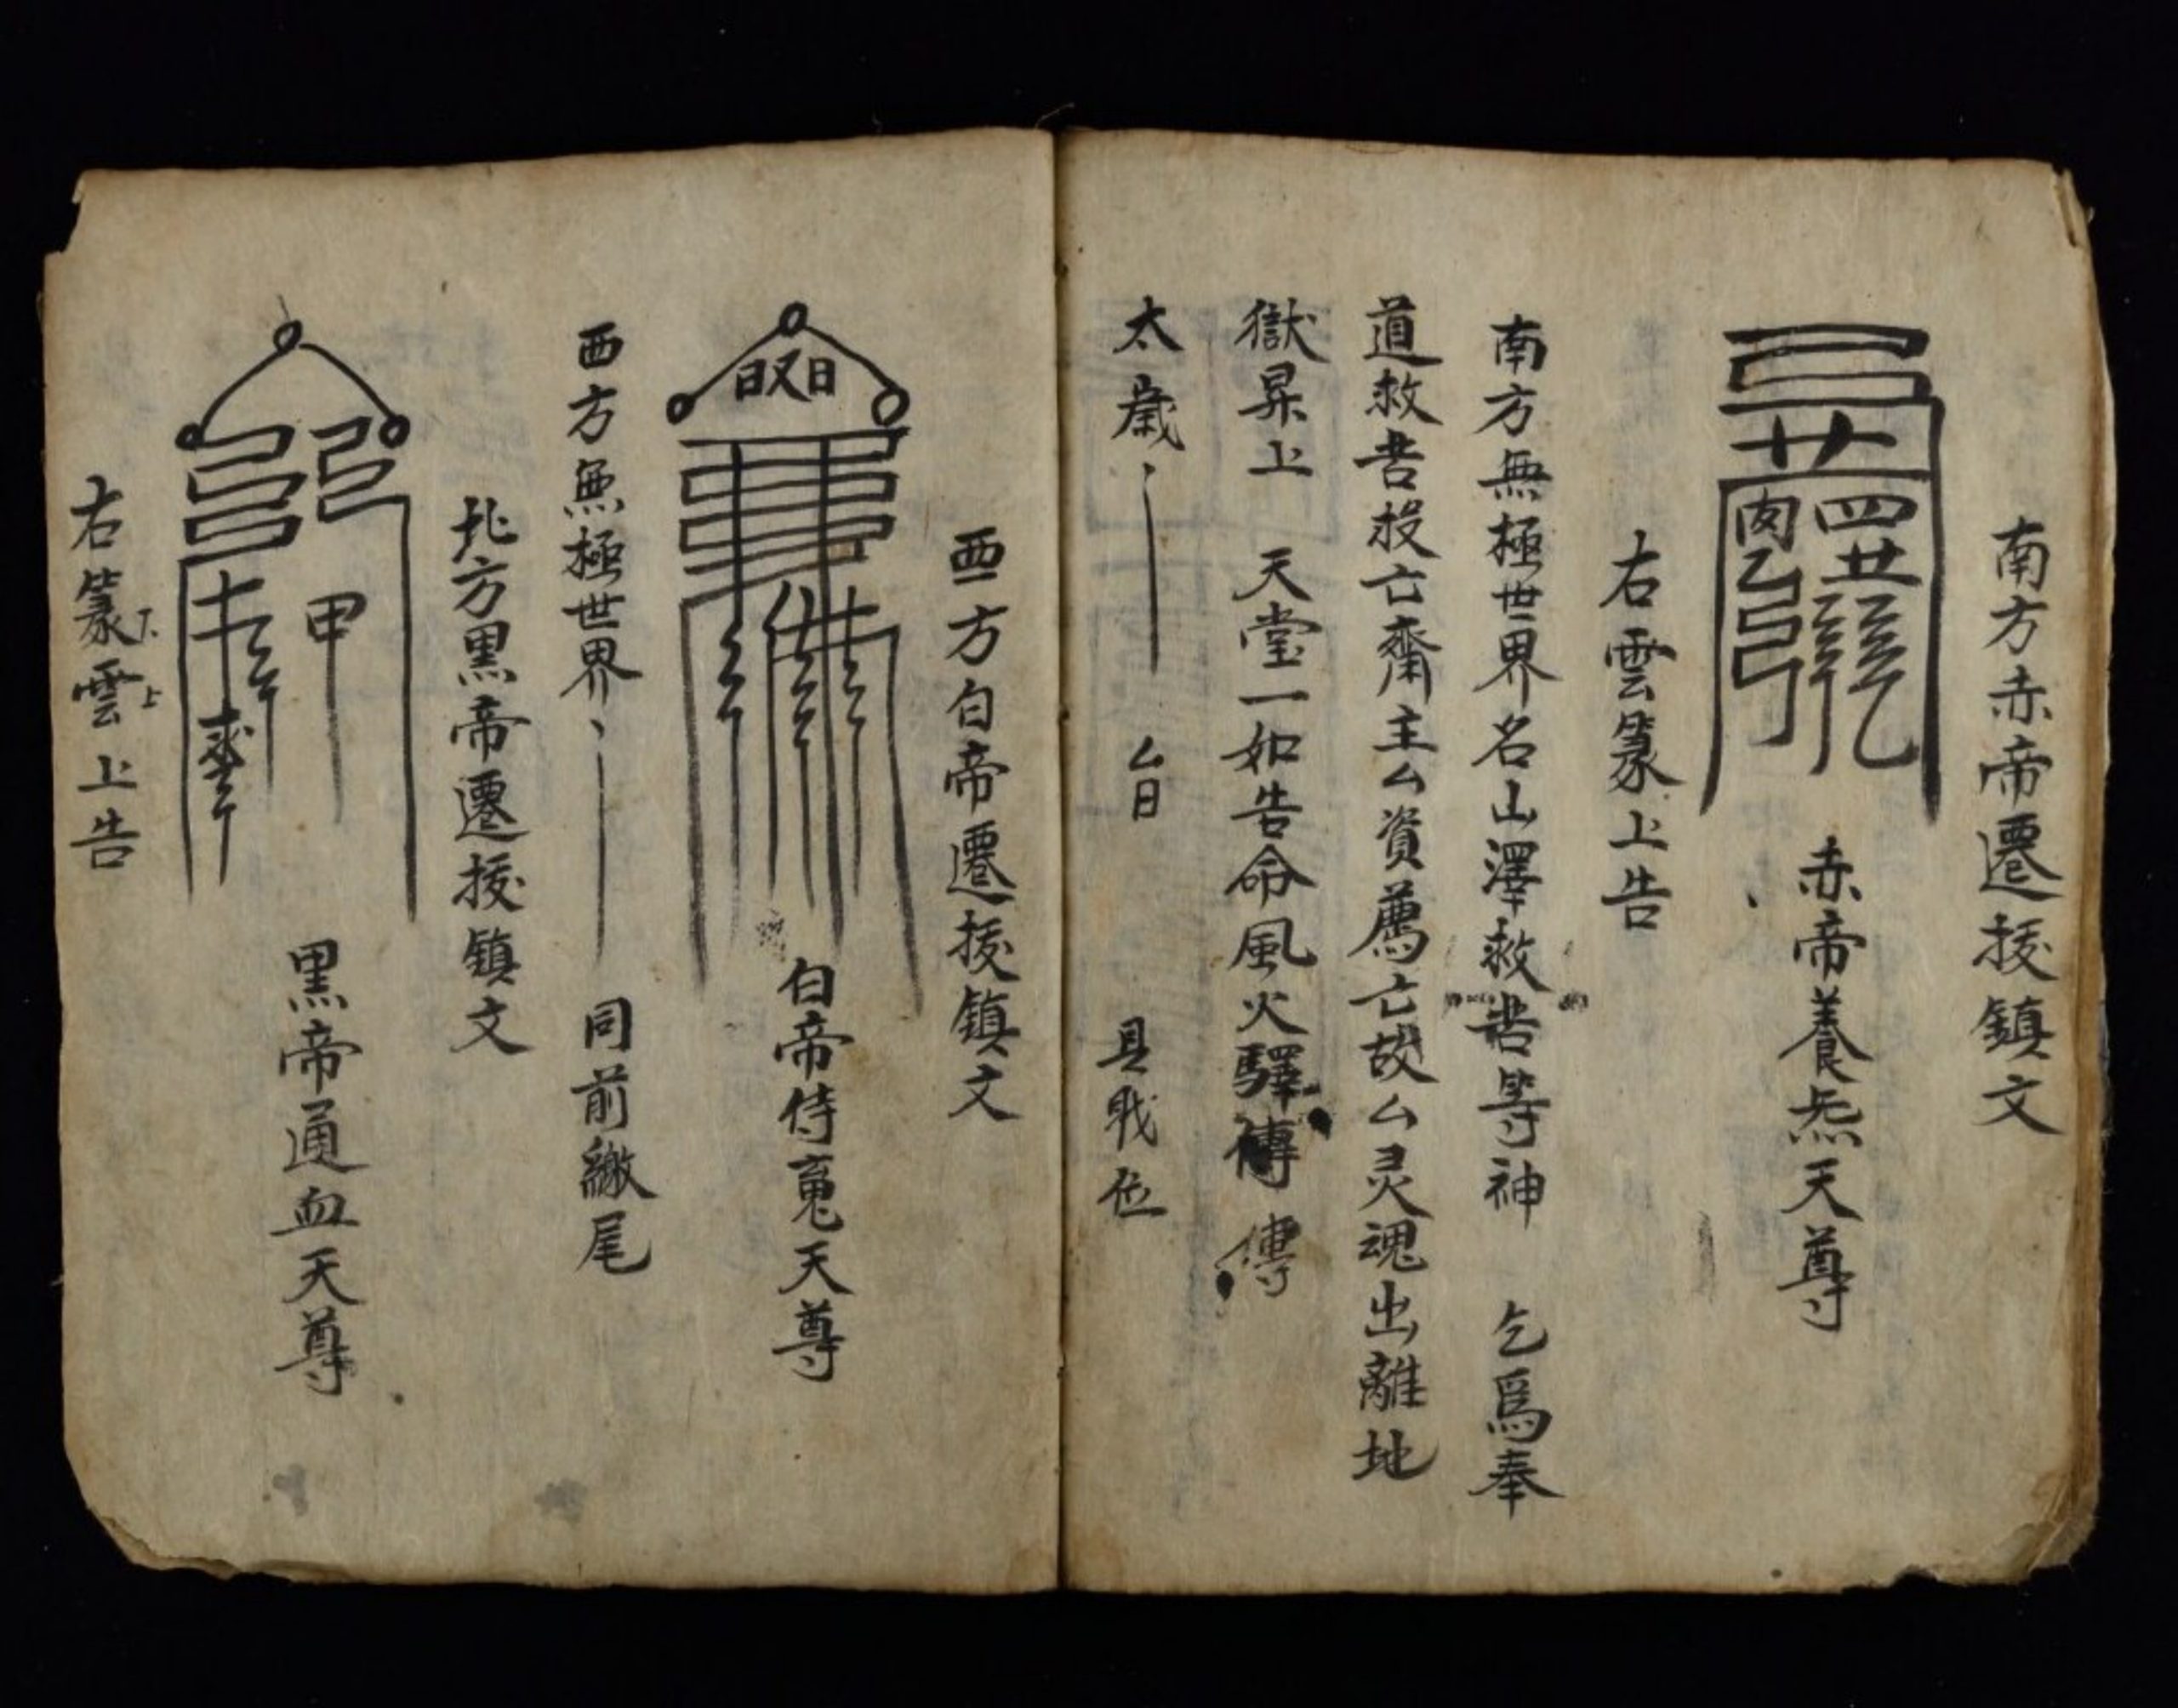 南方赤帝遷拔鎮文
赤帝養炁天尊
右雲篆上告
南方無極世界名山澤救苦等神 乞爲奉
道救苦拔亡齋主厶資薦亡故厶灵魂出離地
獄昇上 天堂一如告命風火驛傳 傳
太歲 厶日 具職位
西方白帝遷拔鎮文
日又日
白帝侍魂天尊
西方無極世界 同前繳尾
北方黑帝遷拔鎮文
甲
黑帝通血天尊
右篆下雲上上告